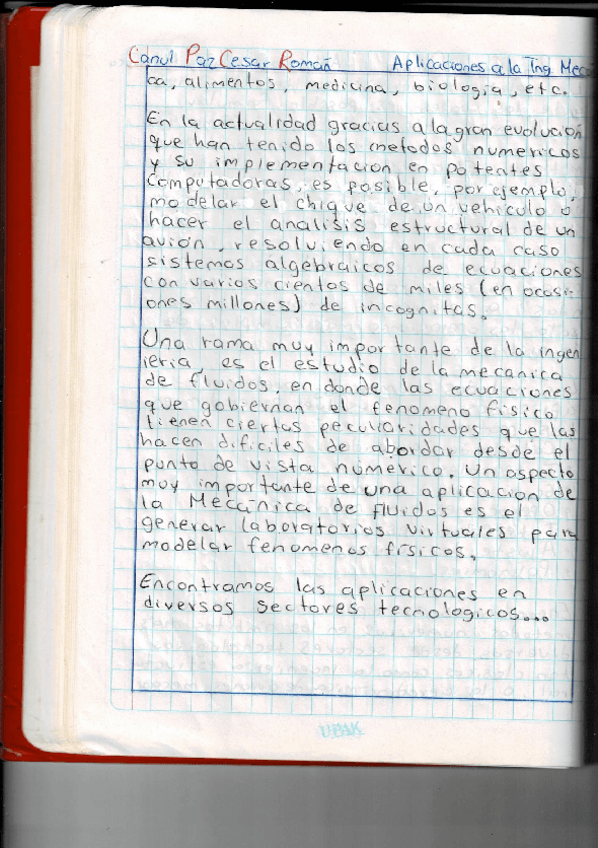 Canul Paz Cesar Román Aplicaciones a la Ing. Mecá
ca, alimentos, medicina, biología, etc.
En la actualidad gracias a la gran evolución
que han tenido los metodos numericos
y su implementación en potentes
computadoras, es posible, por ejemplo,
modelar el chique de un vehículo o
hacer el analisis estructural de un
avión, resolviendo en cada caso
sistemas algebraicos de ecuaciones
con varios cientos de miles (en ocasi-
ones millones) de incognitas.
Una rama muy importante de la ingen
iería, es el estudio de la mecanica
de fluidos, en donde las ecuaciones
que gobiernan el fenomeno físico
tienen ciertas peculiaridades que las
hacen dificiles de abordar desde el
punto de vista númerico. Un aspecto
muy importante de una aplicacion de
la Mecánica de fluidos es el
generar laboratorios virtuales para
modelar fenomenos físicos.
Encontramos las aplicaciones en
diversos sectores tecnologicos...